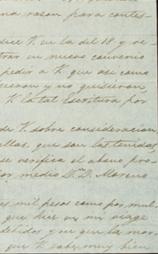 una razon para contes-
dice V. en la del 18 y ve
trar un nuevo convenio
pedir a V. que asi como
cieron y no quisieron
V. la tal Escritura por
de V. sobre consideracion
ellas, que son las tenidas
se verifica el abono pro-
por medio D.n D. Moreno
es mil pesos como por mul-
que hice en mi viage
debidos y en que la mor-
que V. sabe muy bien